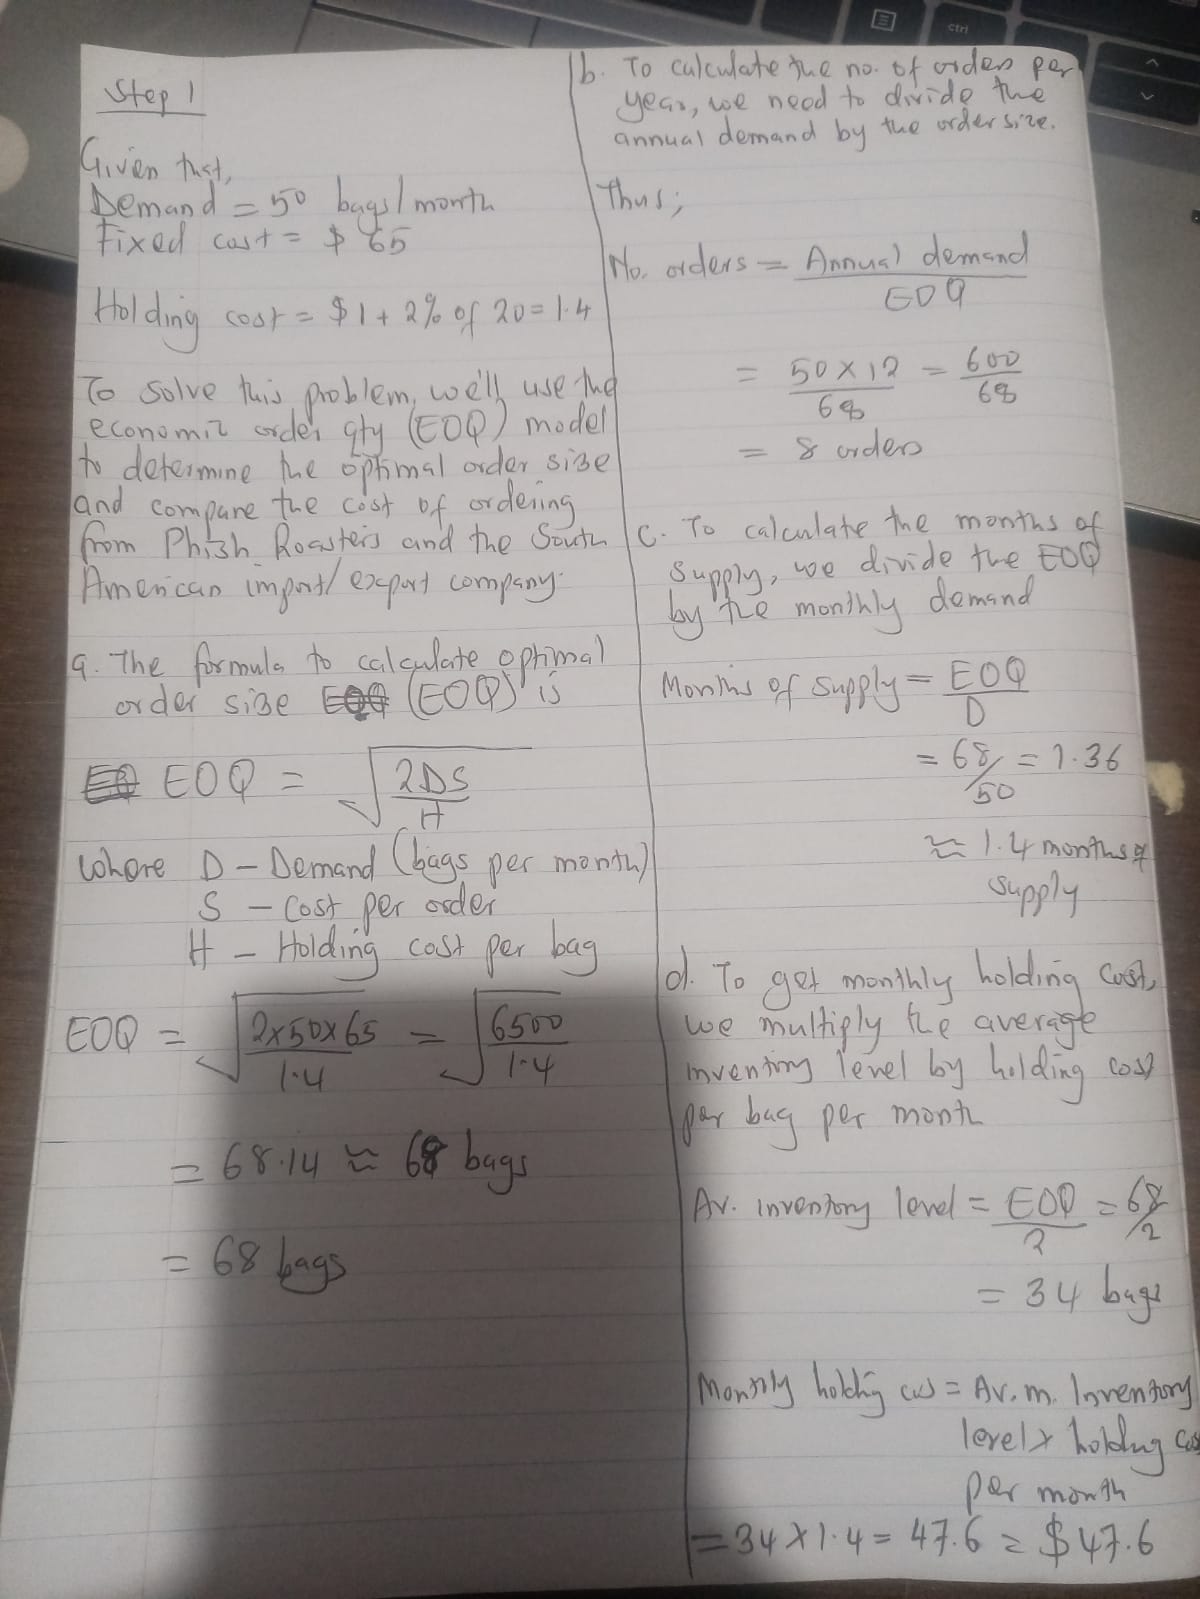 Step 1
Given that,
Demand = 50 bags/month
Fixed cost = $ 65
Holding cost = $1 + 2% of 20 = 1.4
To solve this problem, we'll use the
economic order qty (EOQ) model
to determine the optimal order size
and compare the cost of ordering
from Phish Roasters and the South
American import/export company.
a. The formula to calculate optimal
order size (EOQ) is
EOQ = √(2DS/H)
Where D – Demand (bags per month)
S – Cost per order
H – Holding cost per bag
EOQ = √(2x50x65/1.4) = √(6500/1.4)
= 68.14 ≈ 68 bags
= 68 bags
b. To calculate the no. of orders per
year, we need to divide the
annual demand by the order size.
Thus;
No. orders = Annual demand / EOQ
= 50 x 12 / 68 = 600 / 68
= 8 orders
C. To calculate the months of
supply, we divide the EOQ
by the monthly demand
Months of supply = EOQ / D
= 68/50 = 1.36
≈ 1.4 months of
supply
d. To get monthly holding cost,
we multiply the average
inventory level by holding cost
per bag per month
Av. inventory level = EOQ / 2 = 68/2
= 34 bags
Monthly holding cos = Av. m. Inventory
level x holding cos
per month
= 34 x 1.4 = 47.6 = $47.6
ctrl